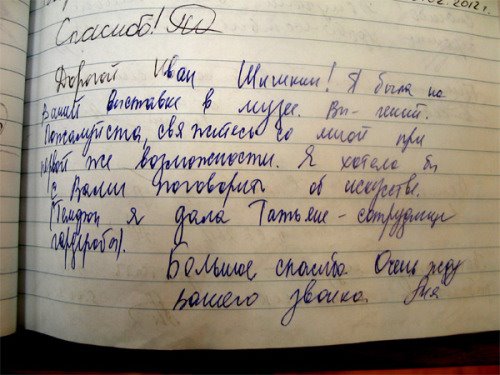 02.2012г.
Спасибо!
Дорогой Иван Шишкин! Я была на
Вашей выставке в музее. Вы - гений.
Пожалуйста, свяжитесь со мной при
первой же возможности. Я хотела бы
с Вами поговорить об искусстве.
(Телефон я дала Татьяне - сотруднице
гардероба).
Большое спасибо Очень жду
вашего звонка Аня